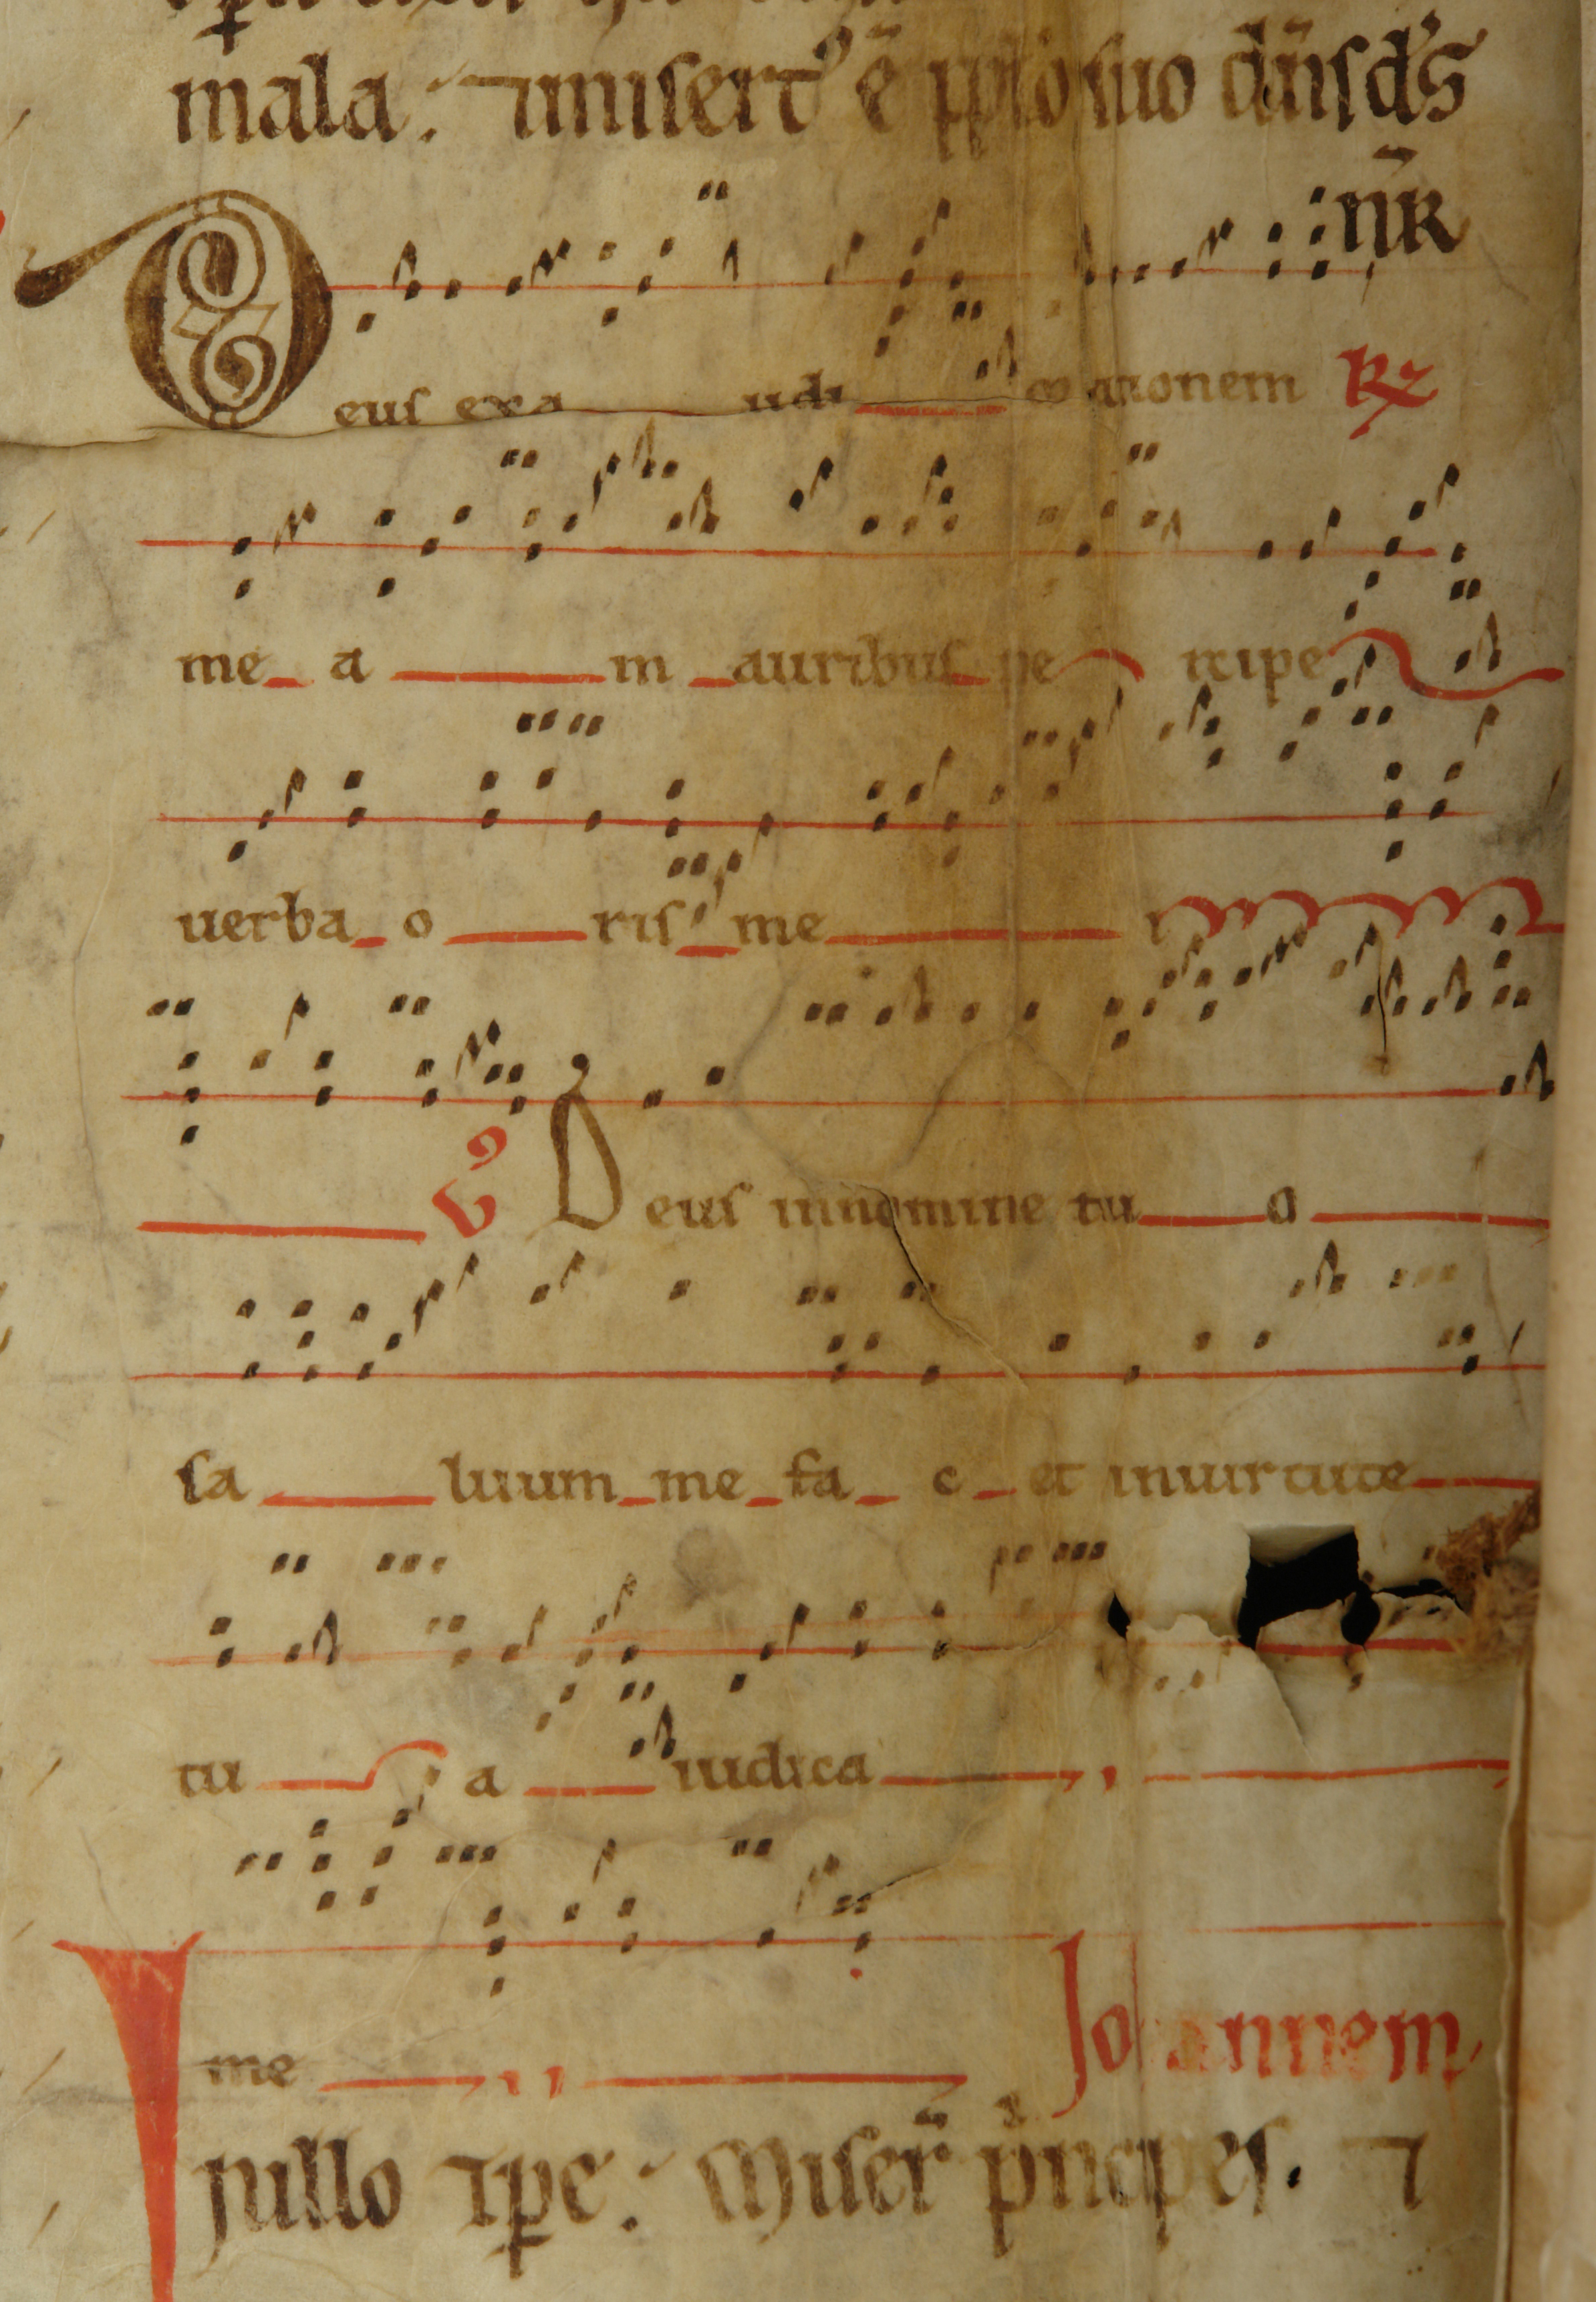 mala. ⁊ misert᷒ ē pplo suo dn̄s ds̄
nr̄
Deus exa udi orationem R
me a m auribus pe rcipe
uerba o ris me i
V Deus innomine tu o
sa luum me fa c et inuirtute
tu a iudica
me Johannem
Jn illo tp̄e. Miser̄ pͥncipes. ⁊